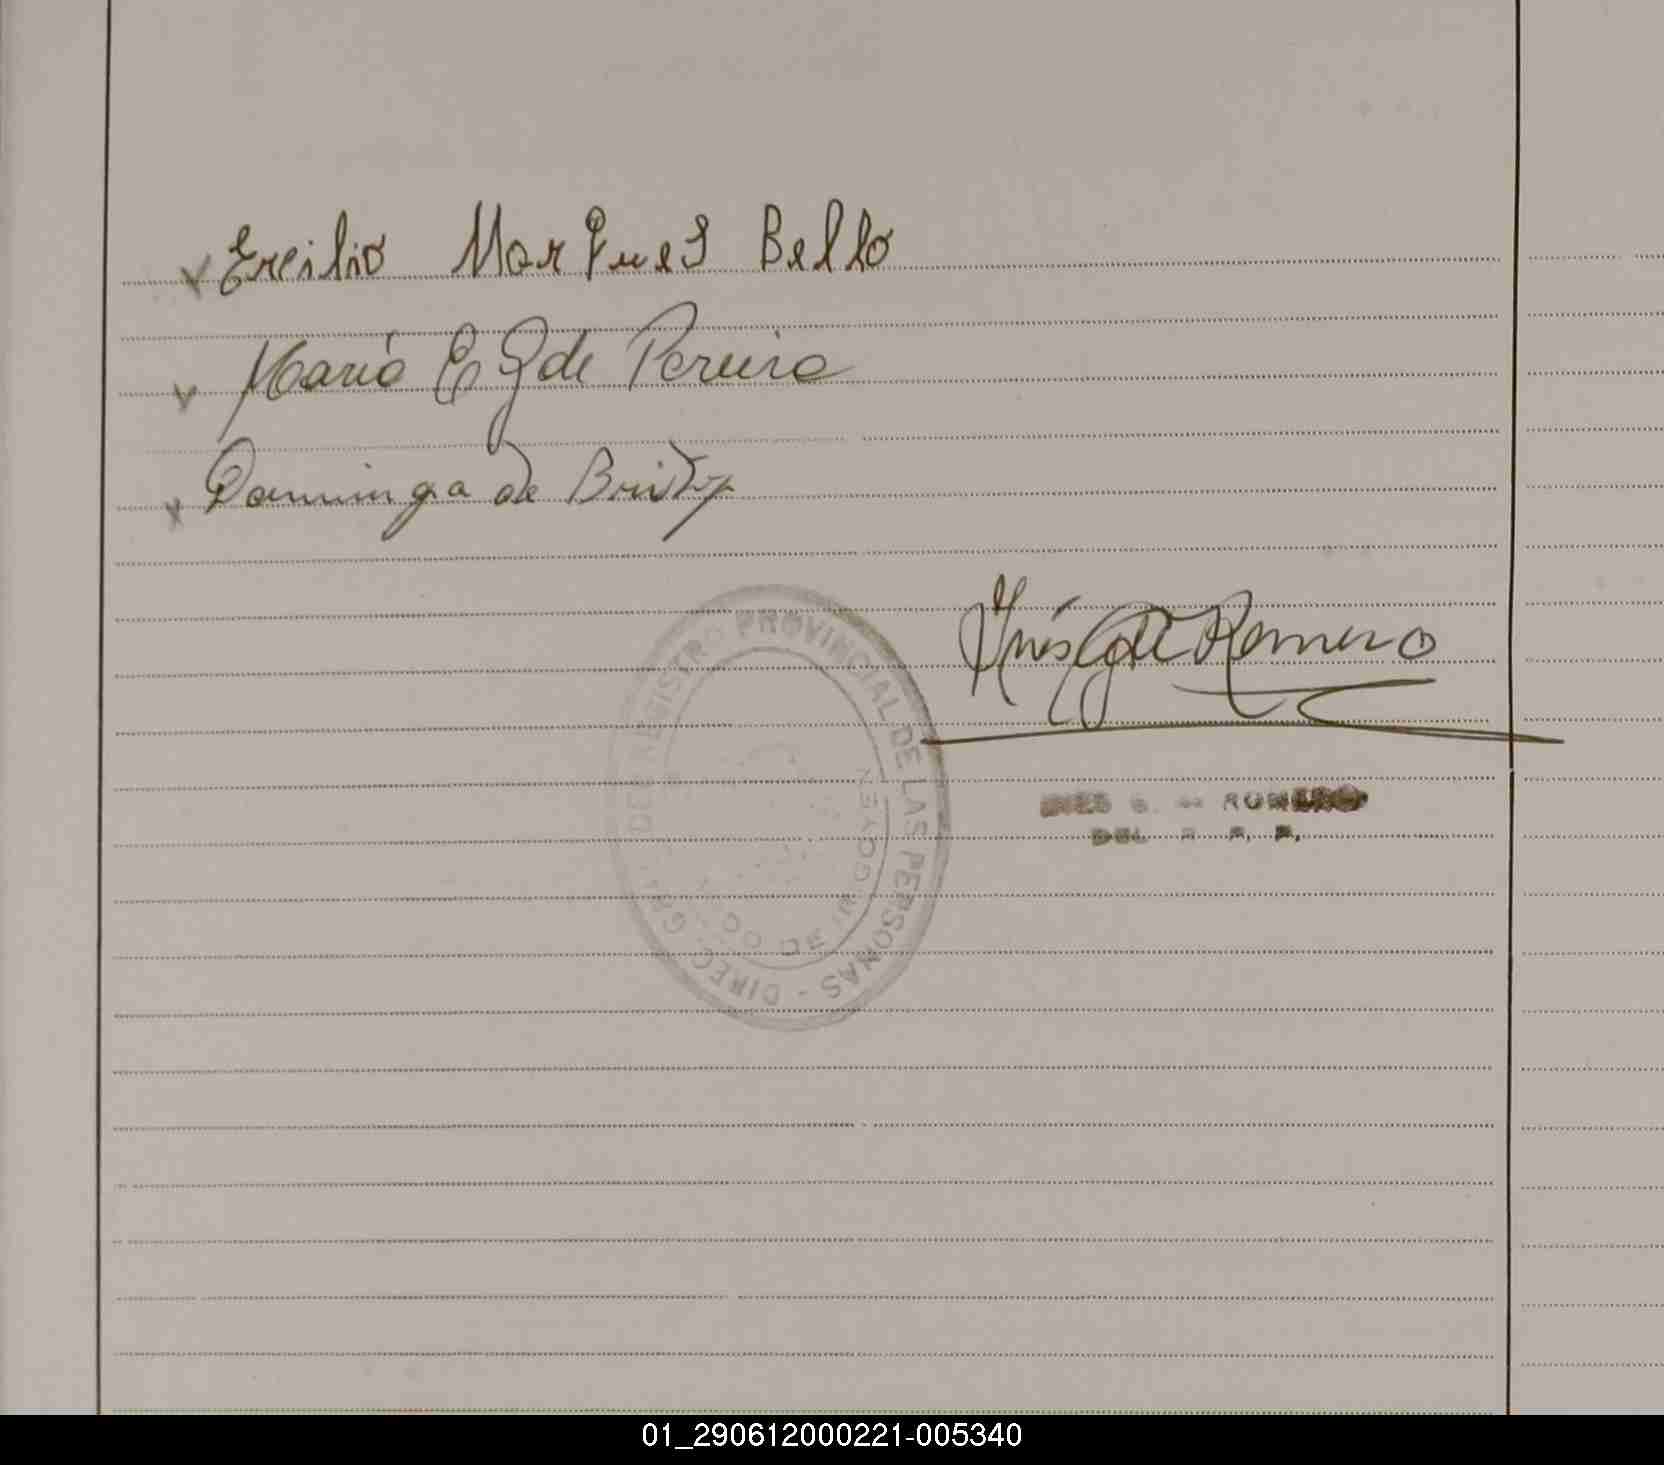 Ercilio Marques Bello
Maria E G de Pereira
Dominga de Britez
Inés G de Romero
INES G. de ROMERO
DEL R. P. P.
DIREC. GRAL. DEL REGISTRO PROVINCIAL DE LAS PERSONAS -
DO DE IRIGOYEN
01_290612000221-005340